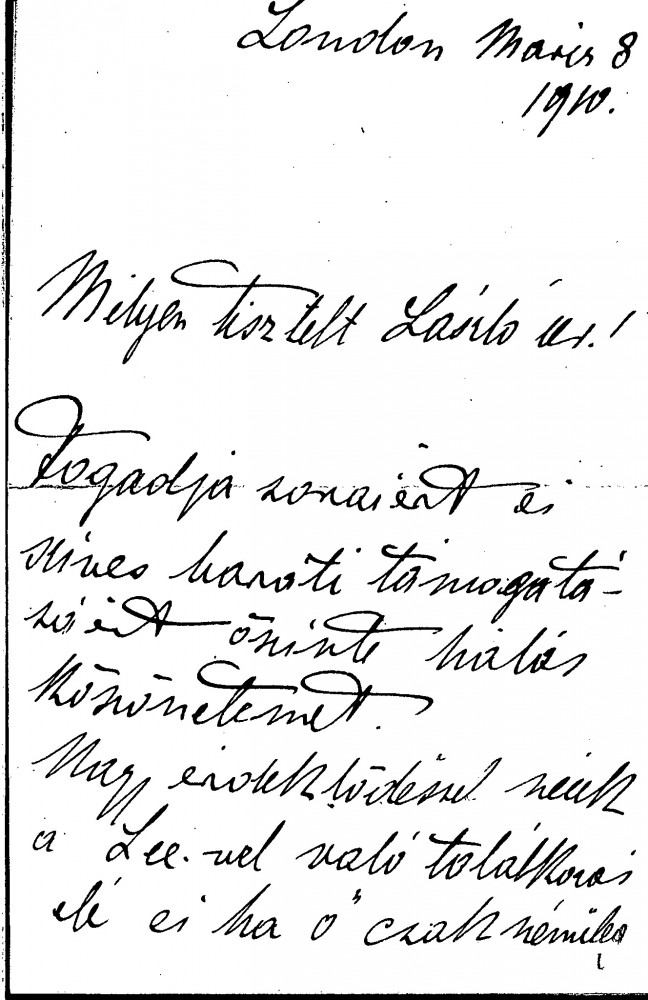 London Marcz 8
1910.
Mélyen tisztelt László úr!
Fogadja soraiért és
szives baráti támogatá-
sáért őszinte hálás
köszönetemet.
Nagy érdeklődéssel nézek
a Lee-vel való találkozás
elé és ha ő csak némileg